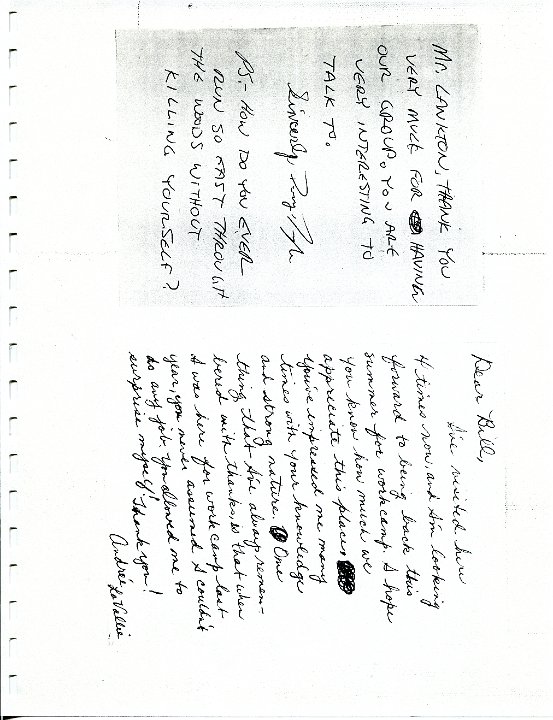 Mr. LANKTON, THANK YOU
VERY MUCH FOR HAVING
OUR GROUP. YOU ARE
VERY INTERESTING TO
TALK TO.
Sincerely,
P.S.- HOW DO YOU EVER
RUN SO FAST THROUGH
THE WOODS WITHOUT
KILLING YOURSELF?
Dear Bill,
I've visited here
4 times now, and I'm looking
forward to being back this
summer for workcamp. I hope
you know how much we
appreciate this place.
You've impressed me many
times with your knowledge
and strong nature. One
thing that I've always remem-
bered with thanks, is that when
I was here for work camp last
year, you never assumed I couldn't
do any job. You allowed me to
surprise myself! Thank you!
Andrée
LaVallie